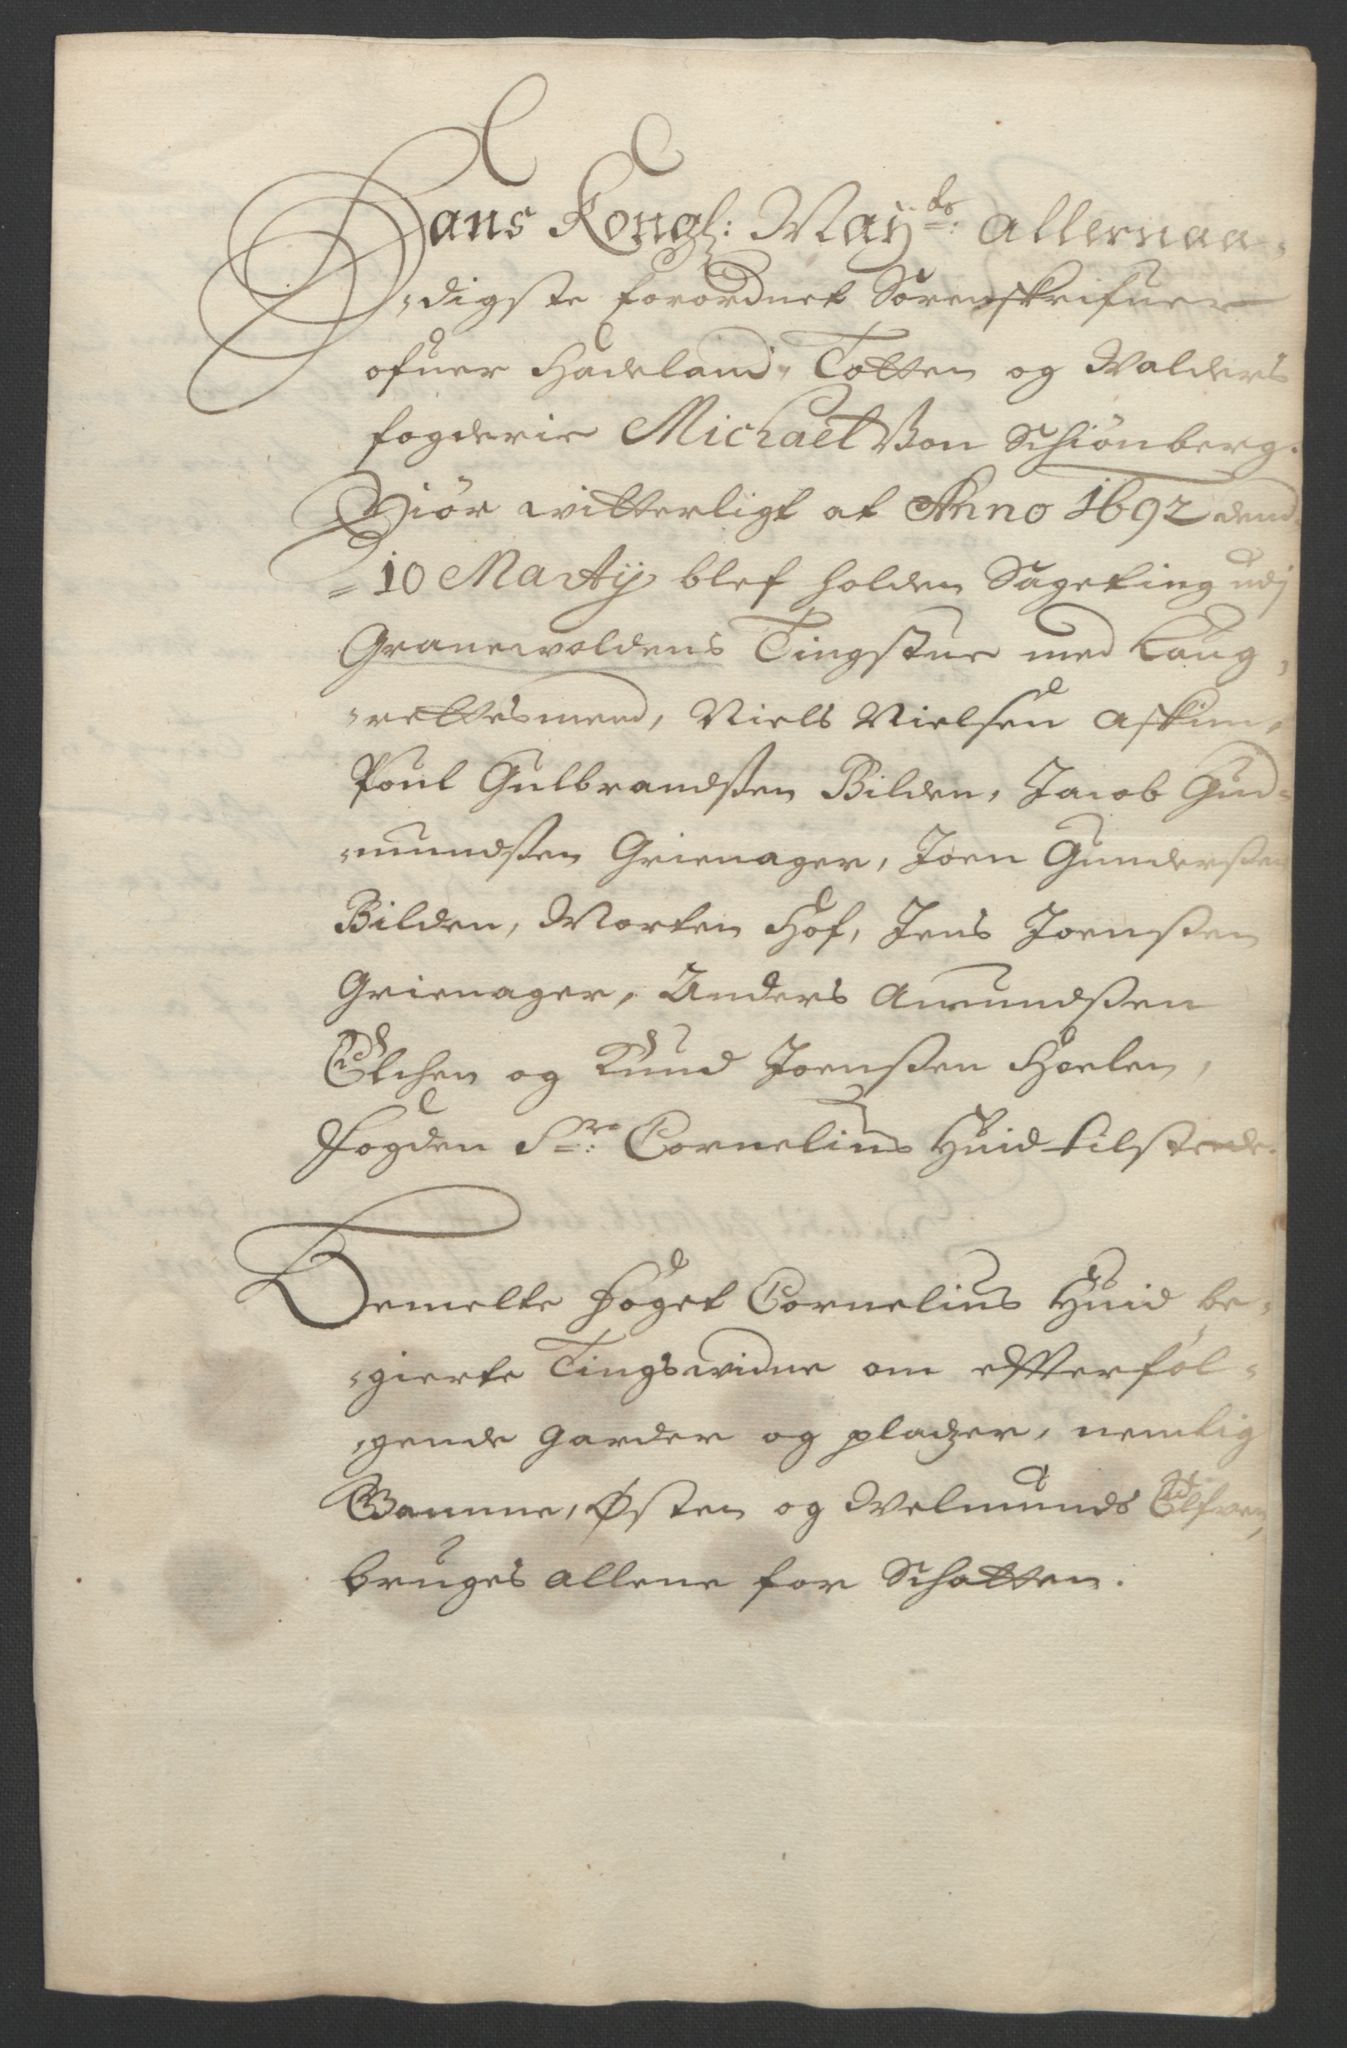 Hans Kongl: Maÿ:ds Allernaa-
-digste forordnet Sorenskrifuer
ofuer Hadeland, Totten og Walders
fogderie Michael Von Schiønberg.
Giør witterligt at Anno 1692 dend
10 Martij blef holden Sageting udj
Granewoldens Tingstue med Laug-
-rettesmend, Niels Nielsen Askim,
Poul Gulbrandßen Bilden, Jacob Gud-
-mundßen Grienager, Joen Gunderßen
Bilden, Morten Hof, Jens Joenßen
Grienager, Anders Amundßen
Elchen og Knud Joenßen Hoelen,
Fogden Sr: Cornelius Huid tilstede.
Bemelte Foget Cornelius Huid be-
-gierte Tingswidne om effterføl-
-gende Garder og pladzer, nemlig
Gamme, Østen og Melmunds
bruges allene for Schatten.